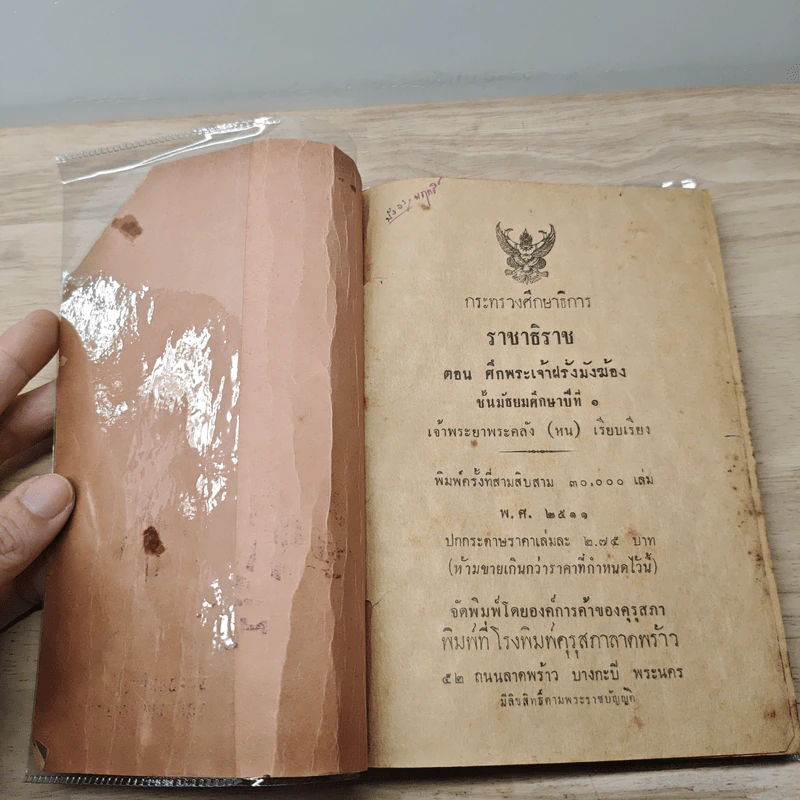 กระทรวงศึกษาธิการ
ราชาธิราช
ตอน ศึกพระเจ้าฝรั่งมังฆ้อง
ชั้นมัธยมศึกษาปีที่ ๑
เจ้าพระยาพระคลัง (หน) เรียบเรียง
พิมพ์ครั้งที่สามสิบสาม ๓๐,๐๐๐ เล่ม
พ.ศ. ๒๕๑๑
ปกกระดาษราคาเล่มละ ๒.๗๕ บาท
(ห้ามขายเกินกว่าราคาที่กำหนดไว้นี้)
จัดพิมพ์โดยองค์การค้าของคุรุสภา
พิมพ์ที่โรงพิมพ์คุรุสภาลาดพร้าว
๕๒ ถนนลาดพร้าว บางกะปิ พระนคร
มีลิขสิทธิ์ตามพระราชบัญญัติ